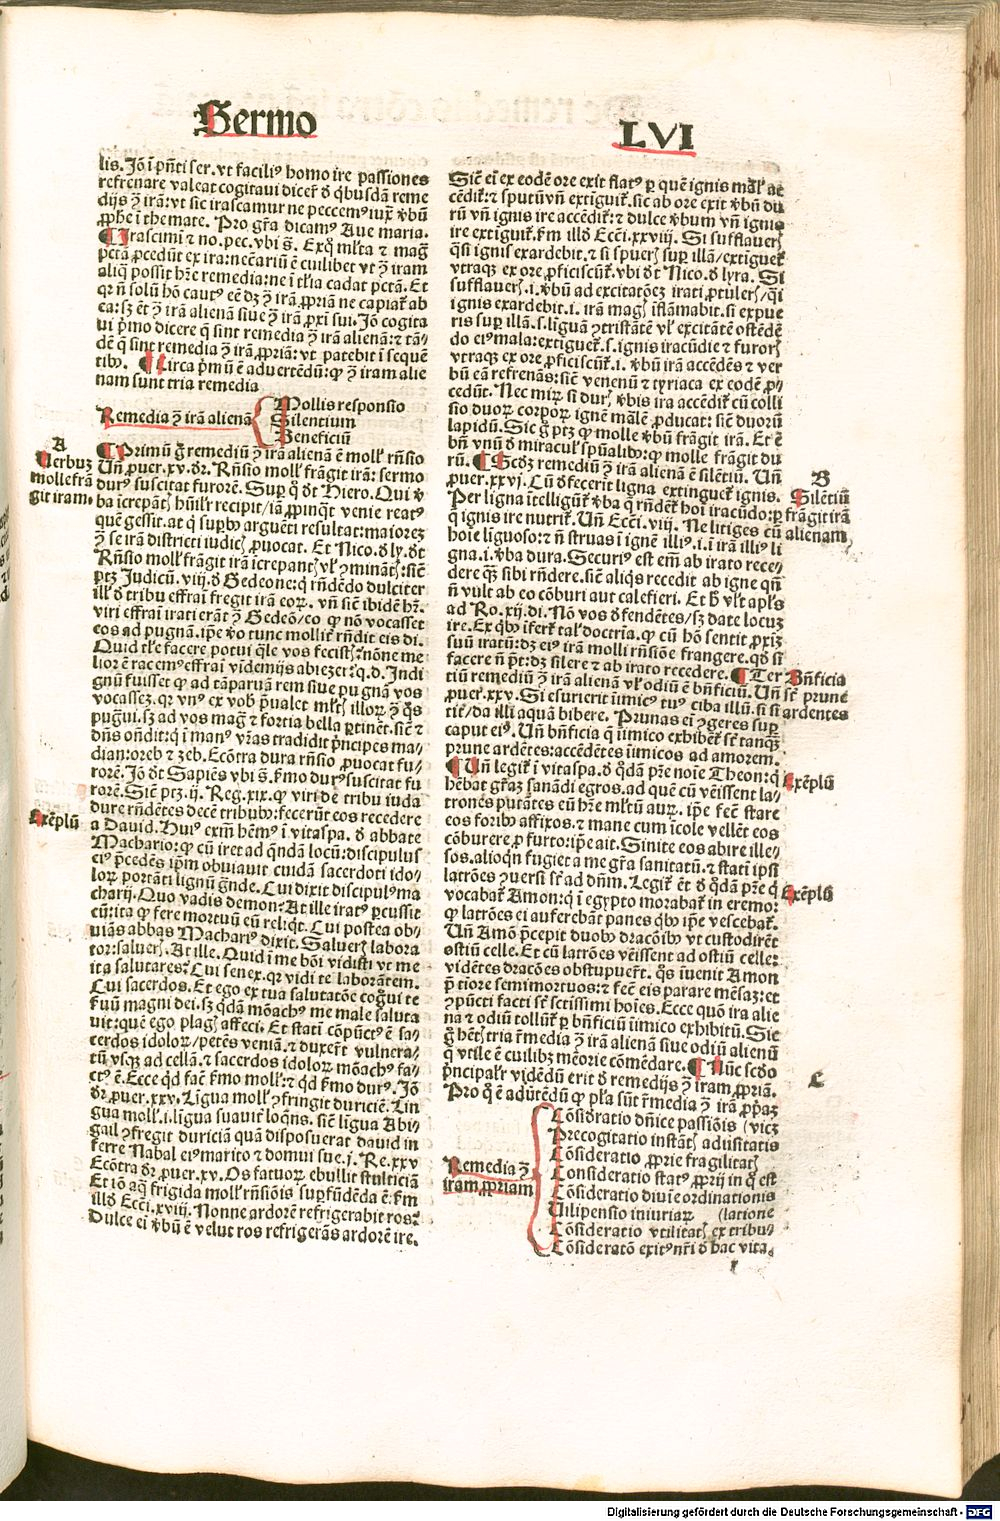 Sermo
LVI
lis. Jõ ĩ pñti ser. vt facili⁹ homo ire passiones
refrenare valeat cogitaui dicer̃ ð q̃busdã reme
dijs ꝯ irã: vt sic irascamur ne peccem⁹ iux̃ v̾bũ
ꝓphe ĩ themate. Pro gr̃a dicam⁹ Aue maria.
¶ Irascimĩ ⁊ no. pec. vbi s̃. Exq̃ ml̃ta ⁊ mag̃
pctã ꝓcedũt ex ira: necariũ ẽ cuilibet vt ꝯ iram
aliq̃ possit hr̃e remedia: ne ĩ tl̃ia cadat pctã. Et
qr ñ solũ hõ caut⁹ eẽ dz ꝯ irã ꝓpriãm ne capiat̃ ab
ea: sz ẽt ꝯ irã alienã siue ꝯ irã ꝓxĩ sui. Jõ cogita
ui p̃mo dicere q̃ sint remedia ꝯ irã alienã: ⁊ tã⸗
dẽ q̃ sint remedia ꝯ irã ꝓpriãm: vt patebit ĩ seq̃uẽ
tibꝰ. ¶ Circa p̃m ṽ ẽ aduertẽdũ: ꝙ ꝯ iram alie
nam sunt tria remedia
Remedia ꝯ irã alienã
Mollis responsio
Silentium
Beneficiũ
A
Verbuz
molle frã
git iram.
¶ Primũ g̊ remediũ ꝯ irã alienã ẽ moll̃ rñsio
Uñ ꝓuer. xv. ðr. Rñsio moll̃ frãgit irã: sermo
dur⁹ suscitat furorẽ. Sup q̊ ðt Hiero. Qui v̾
ba icrepãt̃ hũil̃r recipit/ iã ꝓpinq̃t venie reat⁹
quẽ gessit. at q̃ supb̃o arguẽti resultat: maiorez
ꝯ se irã districti iudic̃ ꝓuocat. Et Nico. ð ly. ðt
Rñsio moll̃ frãgit irã icrepãt̃ vl̃ ꝯminãt̃: sic̃
ptz Judicũ. viij. ð Gedeone: q̃ rñdẽdo dulciter
ill̃ ð tribu effrai fregit irã eoꝝ. vñ sic̃ ibidẽ hr̃.
viri effrai irati erãt ꝯ Gedeõ/ eo ꝙ nõ vocasset
eos ad pugnã. ip̃e v̾o tunc mollit̃ rñdit eis di.
Quid tl̃e facere potui q̃le vos fecist̃: nõne me
lior ẽ racem⁹ effrai vĩdemijs abiezer: q. d. Indi
gnũ fuisset ꝙ ad tãparuã rem siue pugnã vos
vocassez. qr vn⁹ ex vob p̃ualet ml̃t̃ illoꝝ ꝯ q̃s
pug̃ui. sz ad vos mag̃ ⁊ fortia bella ptinẽt. sic̃ ⁊
dñs oñdit: q̃ ĩ man⁹ vr̃as tradidit p̃ncipes ma⸗
dian: oreb ⁊ zeb. Ecõtra dura rñsio ꝓuocat fu⸗
rorẽ. Jõ ðt Sapiẽs vbi s̃. ẜmo dur⁹ suscitat fu
rorẽ. Sic̃ ptz. ij. Reg. xix. ꝙ viri de tribu iuda
dure rñdẽtes decẽ tribub̃: fecerũt eos recedere
Exẽplũ
a Dauid. Hui⁹ exm̃ hẽm⁹ ĩ vitaspa. ð abbate
Machario: ꝙ cũ iret ad q̃ndã locũ: discipulus
ei⁹ p̃cedẽs ip̃m obuiauit cuidã sacerdoti ido⸗
loꝝ portãti lignũ g̃nde. Cui dixit discipul⁹ ma
charij. Quo vadis demon? At ille irat⁹ pcussit
eũ: ita ꝙ fere mortuũ eũ reliq̃t. Cui postea ob⸗
uiãs abbas Machari⁹ dixit. Saluer̃ labora
tor: saluer̃. At ille. Quid ĩ me boĩ vidisti vt me
ita salutares? Cui senex. qr vidi te laborãtem.
Cui sacerdos. Et ego ex tua salutatõe cog̃ui te
ẜuũ magni dei. sz q̃dã mõach⁹ me male saluta
uit: quẽ ego plag̃ affeci. Et statĩ cõpũct⁹ ẽ sa⸗
cerdos idoloꝝ/ petẽs veniã. ⁊ duxer̃t vulnera⸗
tũ vsq̃ ad cellã. ⁊ sacerdos idoloꝝ mõach⁹ fa⸗
ct⁹ ẽ. Ecce qd fac̃ ẜmo moll̃: ⁊ qd ẜmo dur⁹. Jõ
ðr. ꝓuer. xxv. Lĩgua moll̃ ꝯfringit duriciẽ. Lin
gua moll̃. i. lĩgua suauit̃ loq̃ns. sic̃ lĩgua Abi⸗
gail ꝯfregit duriciã quã disposuerat dauid in
ferre Nabal ei⁹ marito ⁊ domui sue. j. Re. xxv
Ecõtra ðr ꝓuer. xv. Os fatuoꝝ ebullit stulticiã
Et iõ aq̃ frigida moll̃ rñsiõis supfũdẽda ẽ: ẜm
illð Ecci. xviij. Nonne ardorẽ refrigerabit ros?
Dulce ei v̾bũ ẽ velut ros refrigerãs ardorẽ ire.
Sic̃ eĩ ex eodẽ ore exit flat⁹ p quẽ ignis mal̃ ac
cẽdit̃: ⁊ sputũ vñ extiguit̃. sic̃ ab ore exit v̾bũ du
rũ vñ ignis ire accẽdit̃: ⁊ dulce v̾bum vñ ignis
ire extiguit̃. ẜm illð Ecci. xxviij. Si sufflauer̃
q̃si ignis exardebit. ⁊ si spuer̃ sup illã/ extĩguet̃
vtraqꝫ ex ore ꝓficiscũt̃. vbi ðt Nico. ð lyra. Si
sufflauer̃. i. v̾bũ ad excitatõez irati ꝓtuler̃/ q̃si
ignis exardebit. i. irã mag̃ iflãmabit. si expue
ris sup illã. s. liguã ꝯtristãtẽ vl̃ excitãtẽ oñdẽ
do ei⁹ mala: extiguet̃. s. ignis iracũdie ⁊ furor̃
vtraqꝫ ex ore ꝓficiscũt̃. i. v̾bũ irã accẽdẽs ⁊ ver
bũ eã refrenãs: sic̃ venenũ ⁊ tyriaca ex eodẽ ꝓ⸗
cedũt. Nec mir̃ si dur̃ v̾bis ira accẽdit̃ cũ colli
sio duoꝝ corpoꝝ ignẽ mãle ꝓducat: sic̃ duorũ
lapidũ. Sic g̊ ptz ꝙ molle v̾bũ frãgit irã. Et ẽ
bñ vnũ ð miracul̃ spũalibꝰ: ꝙ molle frãgit du
rũ. ¶ Scðz remediũ ꝯ irã alienã ẽ silẽtiũ. Uñ
ꝓuer. xxvj. Cũ ðfecerit ligna extinguet̃ ignis.
Per ligna ĩtelligũt̃ v̾ba q̃ rñdẽt̃ hoĩ iracũdo: p
q̃ ignis ire nutrit̃. Uñ Ecci. viij. Ne litiges cũ
hoĩe liguoso: ⁊ ñ struas ĩ ignẽ illi⁹. i. ĩ irã illi⁹ li
gna. i. v̾ba dura. Securi⁹ est em̃ ab irato rece⸗
dere q̃ꝫ sibi rñdere. sic̃ aliq̃s recedit ab igne qñ
ñ vult ab eo cõburi aut calefieri. Et h̾ vl̃t apl̃s
ad Ro. xij. di. Nõ vos ðfendẽtes/ sz date locuz
ire. Ex qb̃o ifert̃ tal̃ doctria. ꝙ cũ hõ sentit ꝓxĩz
suũ iratũ: dz ei⁹ irã molli rñsiõe frangere. qð si
facere ñ p̃t: dz silere ⁊ ab irato recedere. ¶ Ter
tiũ remediũ ꝯ irã alienã vl̃ odiũ ẽ bñficiũ. Uñ
ꝓuer. xxv. Si esurierit iimic⁹ tu⁹ ciba illũ. si si
tit̃/ da illi aquã bibere. Prunas eĩ ꝯgeres sup
caput ei⁹. Uñ bñficia q̃ iimico exhibet̃ st̃ tanq̃ꝫ
prune ardẽtes: accẽdẽtes iimicos ad amorem.
¶ Uñ legit̃ ĩ vitaspa. ð q̃dã pr̃e noĩe Theon: q̃
hẽbat gr̃az sanãdi egros. ad quẽ cũ vẽissent la⸗
trones putãtes eũ hr̃e ml̃tũ auꝝ. ip̃e fec̃ stare
eos forib̃ affixos. ⁊ mane cum ĩcole vellẽt eos
cõburere ꝓ furto: ip̃e ait. Sinite eos abire ille⸗
sos. alioqn fugiet a me gr̃a sanitatũ. ⁊ statĩ ip̃i
latrões ꝯuersi st̃ ad dñm. Legit̃ ẽt ð q̃dã pr̃e q̃
vocabat̃ Amon: q̃ ĩ egypto morabat̃ in eremo:
ꝙ latrões ei auferebãt panes qb̃o ip̃e vescebat̃.
Uñ Amõ p̃cepit duob̃ dracõib̃ vt custodirẽt
ostiũ celle. Et cũ latrões vẽissent ad ostiũ celle:
vidẽtes dracões obstupuer̃t. q̃s iuenit Amon
p̃ tiore semimortuos: ⁊ fec̃ eis parare mẽsaz: et
ꝯpũcti facti st̃ sctissimi hoĩes. Ecce quõ ira alie
na ⁊ odiũ tollũt̃ p bñficiũ iimico exhibitũ. Sic
g̊ hẽt̃ tria r̃media ꝯ irã alienã siue odiũ alienũ
q̃ vtile ẽ cuilibꝫ mẽorie cõmẽdare. ¶ Nũc scðo
p̃ncipal̃r vidẽdũ erit ð remedijs ꝯ iram ꝓpriã.
Pro q̊ ẽ adũtẽdũ ꝙ pl̃a sũt r̃media ꝯ irã ꝓp̃az
B
Silẽtiũ
frãgit irã
alienam
Bñficia
st̃ prune
ardentes
Exẽplũ
Exẽplũ
C
Remedia ꝯ
iram ꝓpriam
Cõsiðratio dñice passiõis (vicz
Precogitatio instãt̃ adũsitatis
Cõsideratio ꝓprie fragilitat̃
Consideratio stat⁹ ꝓprij in q̊ est
Cõsideratio diuĩe ordinationis
Uilipensio iniuriaꝝ (latione
Cõsideratio vtilitat̃ ex tribu⸗
Cõsideratõ exit⁹ nr̃i ð hac vita.
Digitalisierung gefördert durch die Deutsche Forschungsgemeinschaft - DFG